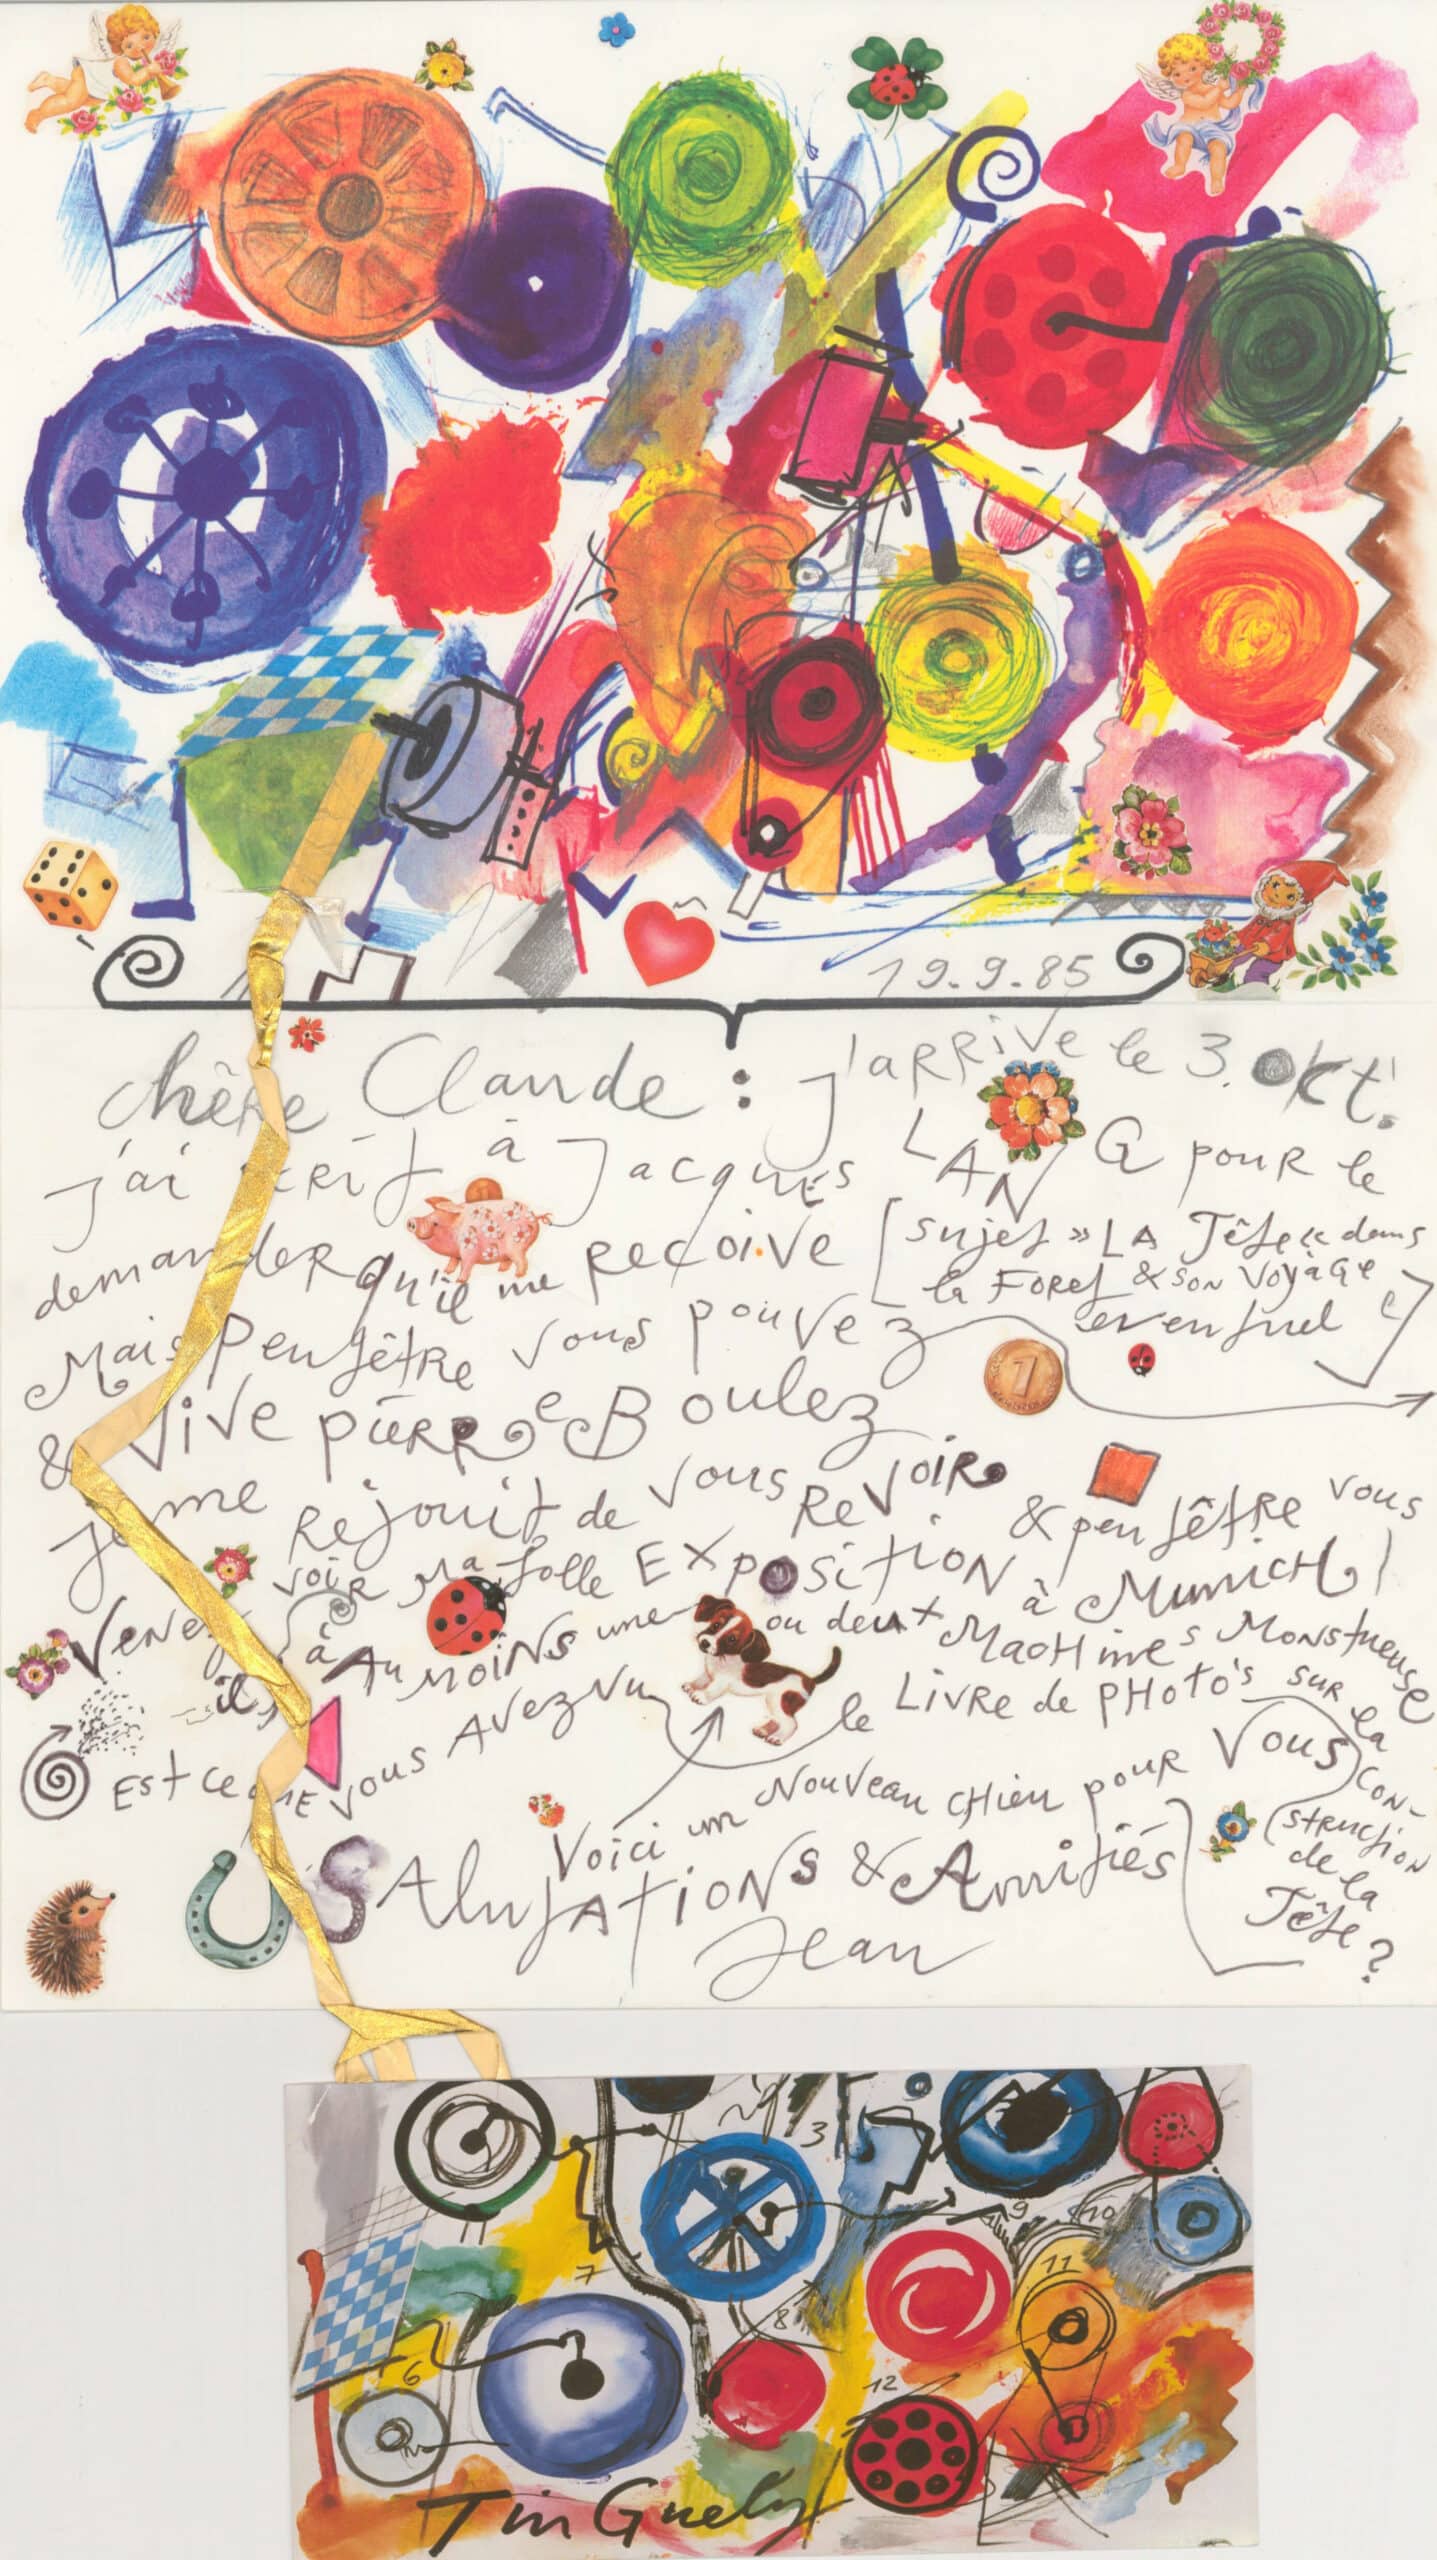 19.9.85
chère Claude : j'arrive le 3. Okt.
j'ai écrit à Jacques LANG pour le
demander qu'il me reçoive [sujet »LA Tête« dans
la Foret & son voyage
eventuel]
Mais peutêtre vous pouvez
& Vive pierre Boulez
je me rejouit de vous revoir & peutêtre vous
venez voir Ma folle Exposition à MunicH
il, à Au moins une ou deux MacHines Monstrueuse
Est ce que vous avez vu le Livre de pHoto's sur la
con-
struction
de la
Tête ?
Voici un Nouveau cHien pour Vous
SAlutations & Amitiés
Jean
1
3
9
10
7
11
8
6
12
TinGuely